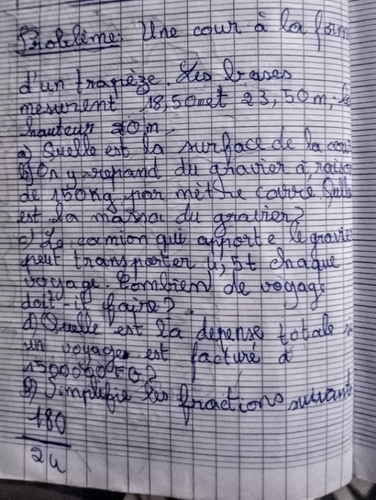 Problème: Une cour à la form
d'un trapèze. Les bases
mesurent 18,50m et 23,50m, la
hauteur 20m.
a) Quelle est la surface de la cour
b) On y repand du gravier à raison
de 150kg par mètre carré. Quelle
est la massa du gravier?
c) Le camion qui apporte le gravie
peut transporter 4,5t chaque
voyage. Combien de voyage
doit-il faire?
d) Quelle est la depense totale si
un voyage est facturé à
1500000FG?
B) Simplifie les fractions suivant
180
24